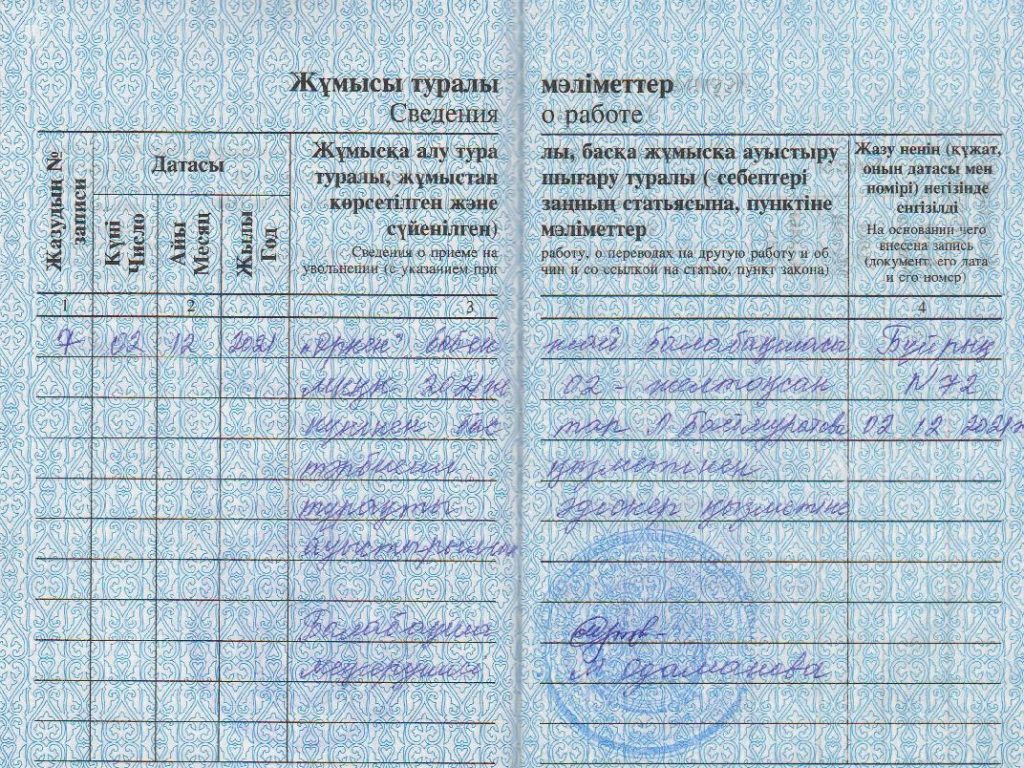 Жұмысы туралы мәліметтер
Сведения о работе
Жазудың №
записи
Датасы
Күні
Число
Айы
Месяц
Жылы
Год
Жұмысқа алу тура лы, басқа жұмысқа ауыстыру
туралы, жұмыстан шығару туралы ( себептері
көрсетілген және заңның статьясына, пунктіне
сүйенілген) мәліметтер
Сведения о приеме на работу, о переводах на другую работу и об
увольнении (с указанием при чин и со ссылкой на статью, пункт закона)
Жазу ненің (құжат,
оның датасы мен
номірі) негізінде
енгізілді
На основании чего
внесена запись
(документ, его дата
и его номер)
1 2 3 4
7 02 12 2021 „Өркен" бөбек жай балабақшасы Бұйрық
2021 02 - желтоқсан N 72
күнінен бас тап Л 02 12 2021ж
тәрбиеші қызметінен
тұрақты әдіскер қызметіне
ауыстырылып
Балабақша
меңгерушісі